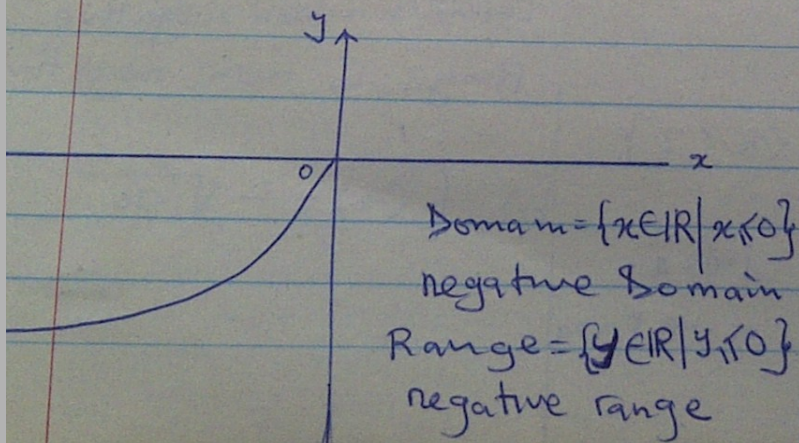 y
x
0
Domain={x∈ℝ|x≤0}
negative Domain
Range={y∈ℝ|y≤0}
negative range